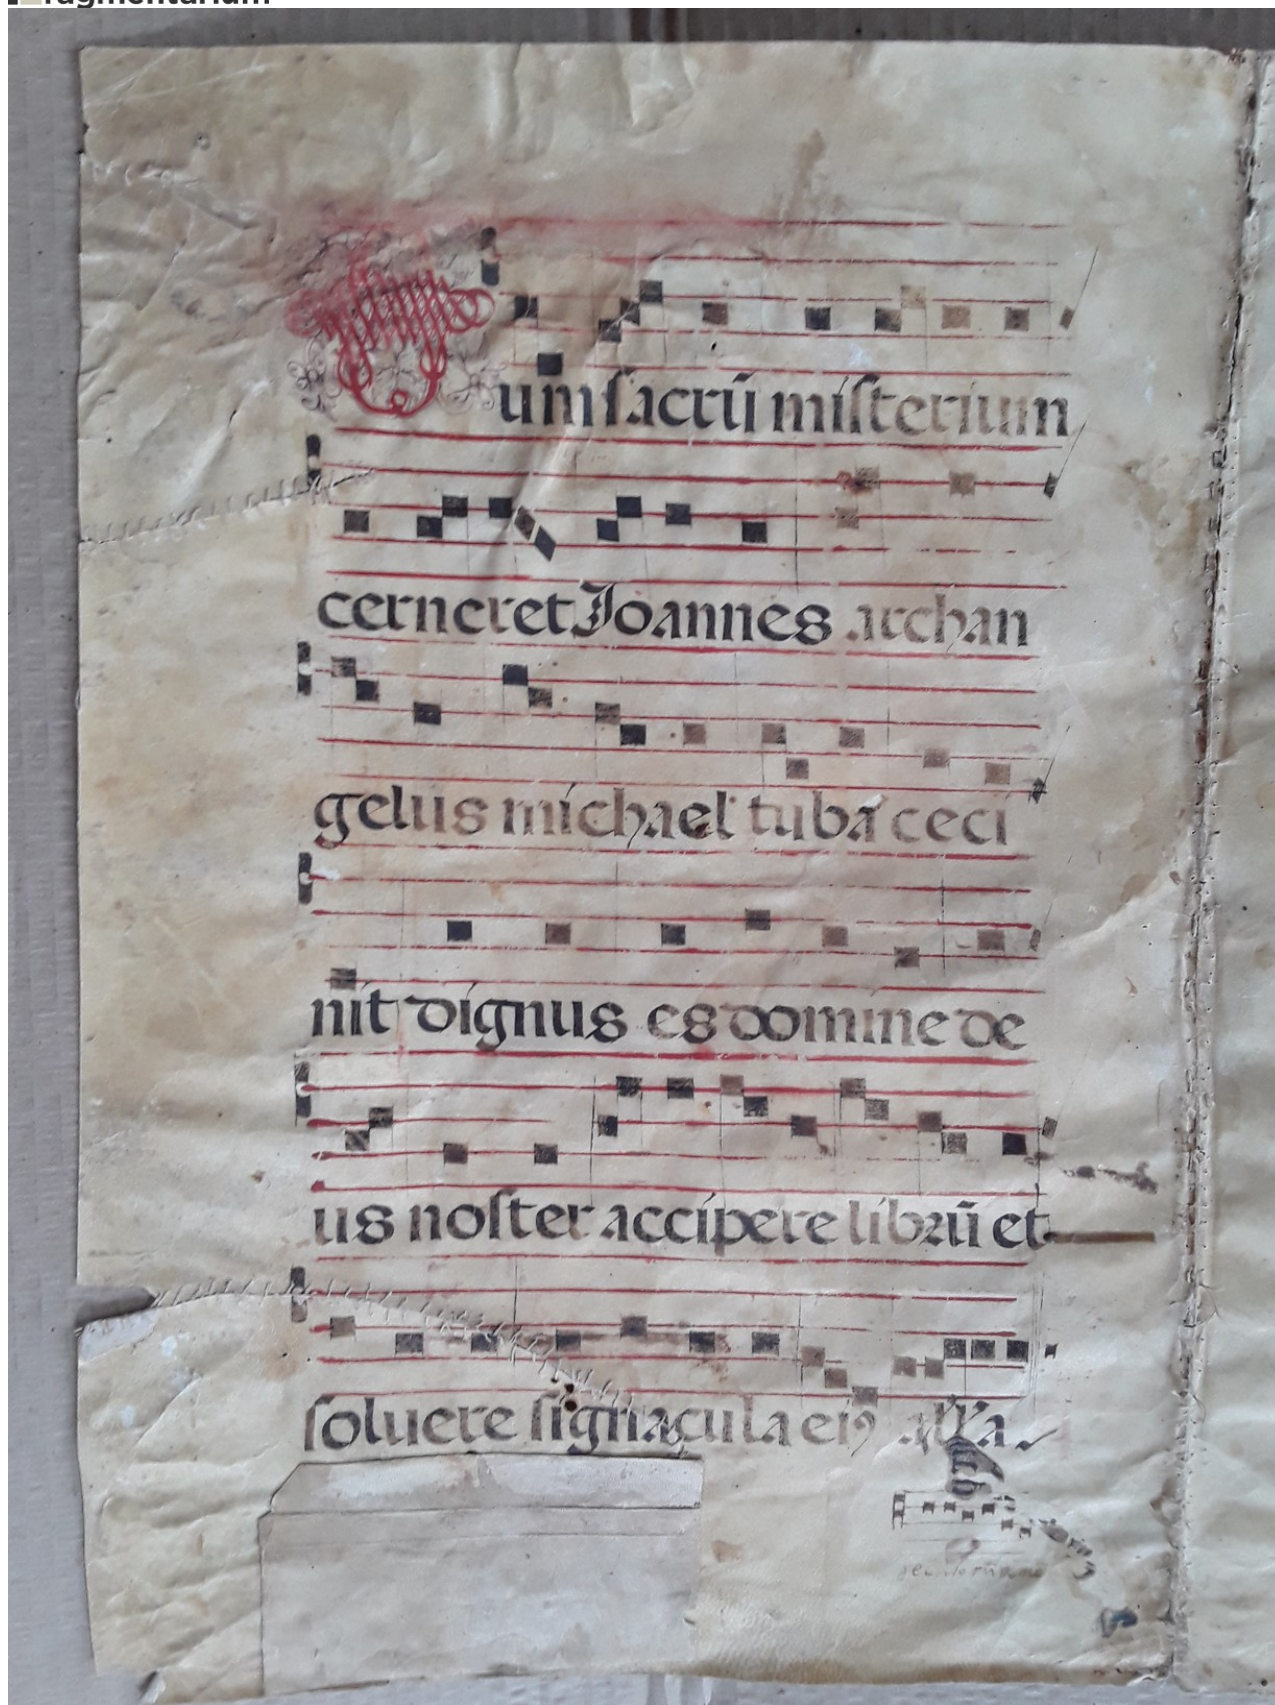 ragmentarium
Dum sacrū misterium
cerneret Joannes archan
gelus michael tuba ceci
nit dignus es domine de
us noster accipere librū et
soluere signacula eiꝰ all'a